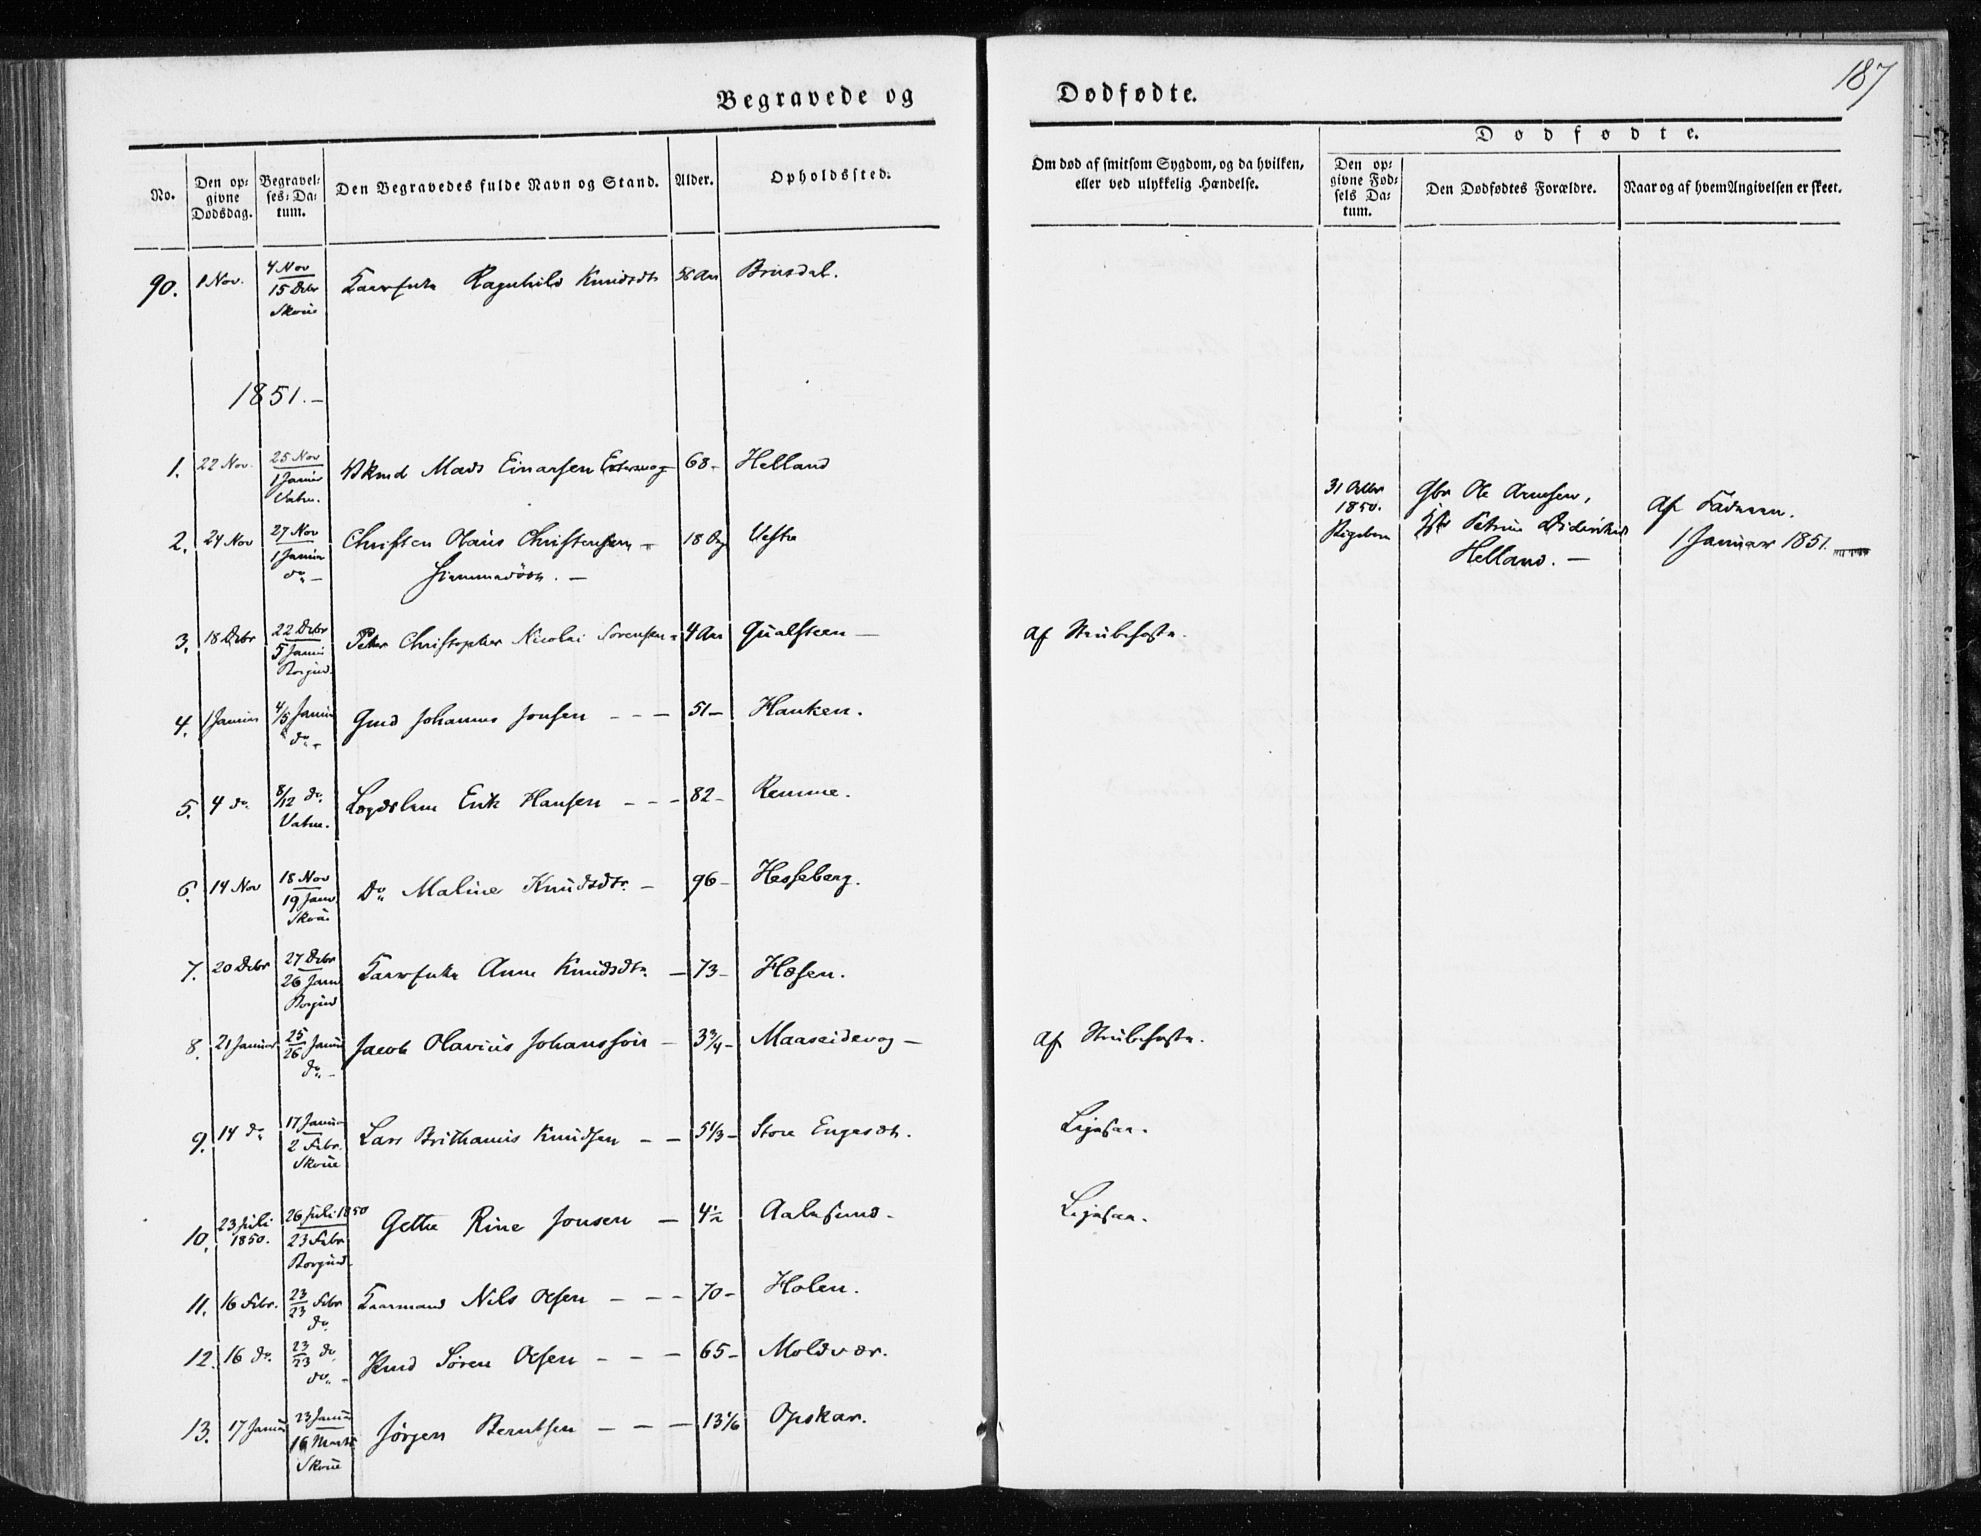 187
Begravede og Dødfødte.
No.
Den op-
givne
Dødsdag.
Begravel-
ses-Da-
tum.
Den Begravedes fulde Navn og Stand.
Alder.
Opholdssted.
Om død af smitsom Sygdom, og da hvilken,
eller ved ulykkelig Hændelse.
Dødfødte.
Den op-
givne Fød-
sels Da-
tum.
Den Dødfødtes Forældre.
Naar og af hvem Angivelsen er skeet.
90. 1 Nov. 4 Nov
15 Debr
Skoue
Ragnhild Knudsdtr 56 Aar Brusdal.
1851.-
1. 22 Nov. 25 Nov
1 Januar
Vatne.
Mads Einarsen 68- Helland
2. 24 Nov 27 Nov
1 Januar
do -
Christen Olaus Christensen - 18 Dg Vestre
Hjemmedøbt. -
31 Octbr
1850.
Gbr Ole Arnesen,
Petrine
Helland. -
Af Faderen.
1 Januar 1851.
3. 18 Debr 22 Debr
5 Janu
Borgund.
Peter Christopher Nicolai Sørensen - 4 Aar Qualsteen - Af Strubehoste.
4. 1 Januar 4/5 Januar
do -
Gmd Johannes Jonsen - - - 51- Hanken.
5. 4 do 8/12 do
Vatne.
Lægdslem Erik Hansen - - - 82- Remme.
6. 14 Nov 18 Nov
19 Janu
Skoue
Do Maline Knudsdtr. - 96- Hesseberg.
7. 20 Debr 27 Debr
26 Janu
Borgund
Anne Knudsdtr. - 73- Hosen.
8. 21 Januar 25/26 Janu
do -
Jacob Olavius Johanssøn - 3 3/4- Maaseidevog - Af Strubehoste.
9. 14 do 17 Januar
2 Febr.
Skoue
Lars Brithanus Knudsen - - 5 1/3- Store Engesæt. Ligesaa.
10. 23 Juli
1850.
26 Juli 1850
23 Febr
Borgund.
Gethe Rine Jonsen - 4 1/2 Aalesund. Ligesaa.
11. 16 Febr. 23/23 Febr
do
Kaarmand Nils Olsen - - - 70- Holen.
12. 16 do. 23/23 do
do -
Søren Olsen - - - 65- Moldvær.
13. 17 Janua 23 Janua
16 Marts
Skoue
Jørgen Berntsen - - - 13 1/6 Opskar.